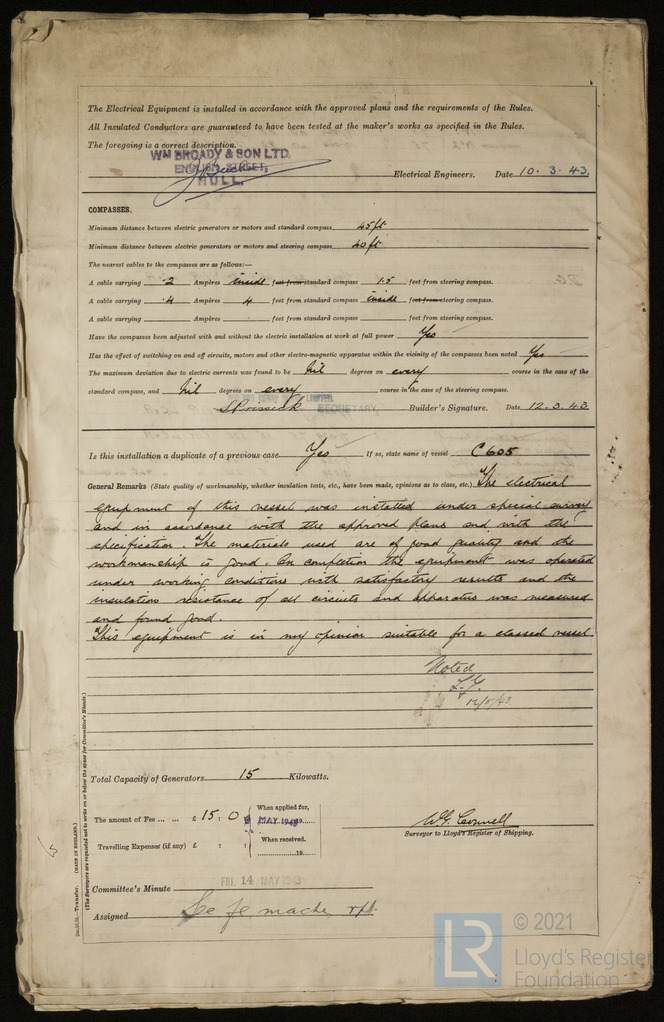 The Electrical Equipment is installed in accordance with the approved plans and the requirements of the Rules.
All Insulated Conductors are guaranteed to have been tested at the maker's works as specified in the Rules.
The foregoing is a correct description.
WM BROADY & SON LTD.
ENGLISH STREET,
HULL.
Electrical Engineers. Date 10.3.43.
COMPASSES.
Minimum distance between electric generators or motors and standard compass 45ft
Minimum distance between electric generators or motors and steering compass 40ft
The nearest cables to the compasses are as follows:—
A cable carrying .2 Ampères inside feet from standard compass 1.5 feet from steering compass.
A cable carrying .4 Ampères 4 feet from standard compass inside feet from steering compass.
A cable carrying Ampères feet from standard compass feet from steering compass.
Have the compasses been adjusted with and without the electric installation at work at full power Yes
Has the effect of switching on and off circuits, motors and other electro-magnetic apparatus within the vicinity of the compasses been noted Yes
The maximum deviation due to electric currents was found to be Nil degrees on every course in the case of the
standard compass, and Nil degrees on every course in the case of the steering compass.
LIMITED,
SECRETARY. Builder's Signature. Date 12.3.43
Is this installation a duplicate of a previous case Yes If so, state name of vessel C605
General Remarks (State quality of workmanship, whether insulation tests, etc., have been made, opinions as to class, etc.) The electrical
equipment of this vessel was installed under special survey
and in accordance with the approved plans and with the
specification. The materials used are of good quality and the
workmanship is good. On completion the equipment was operated
under working conditions with satisfactory results and the
insulation resistance of all circuits and apparatus was measured
and found good.
This equipment is in my opinion suitable for a classed vessel
Noted
12/5/43
Total Capacity of Generators 15 Kilowatts.
The amount of Fee ... ... £ 15 : 0 When applied for, MAY 1943 19
Travelling Expenses (if any) £ : : When received. 19
W.G. Connell
Surveyor to Lloyd's Register of Shipping.
Committee's Minute FRI. 14 MAY 1943
Assigned See Je mache rpt.
(MADE IN ENGLAND.)
Transfer.
(The Surveyors are requested not to write on or below the space for Committee's Minute.)
LR
© 2021
Lloyd's Register
Foundation